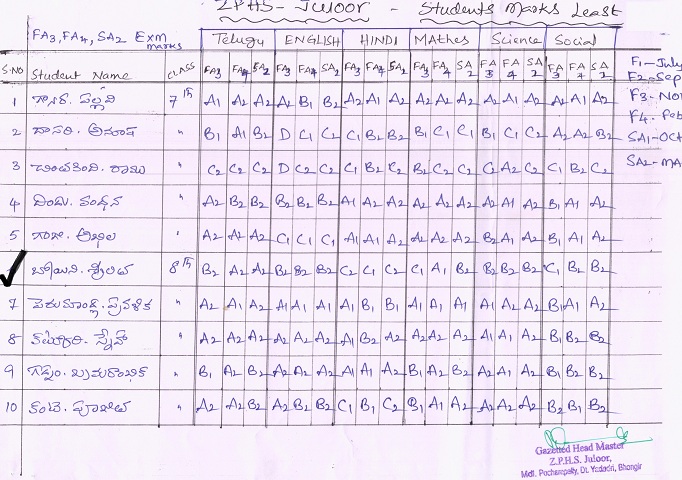 ZPHS - Juloor - Students Marks Least
FA3, FA4, SA2 Exm marks
Telugu ENGLISH HINDI MAthes Science Social
S.NO Student Name CLASS FA3 FA4 SA2 FA3 FA4 SA2 FA3 FA4 SA2 FA3 FA4 SA2 FA3 FA4 SA2 FA3 FA4 SA2
F1-July
F2-Sep
F3-Nov
F4-Feb
SA1-Oct
SA2-MA
1 7th A1 A2 A2 A2 B1 B2 A2 A1 A2 A2 A2 A2 A2 A2 A2 A2 A1 A2
2 దాసరి. అనూష " B1 A1 B2 D C1 C2 C1 B2 B2 B1 C1 C1 B1 C1 C2 A2 A2 B2
3 చింతకింది. రాజు " C2 C2 C2 D C2 C2 C1 B2 C2 B2 C2 C2 C2 A2 C2 C1 B2 C2
4 వందన " A2 B2 B2 B2 B2 B2 A1 A2 A2 A2 A2 A2 A2 A1 A2 B1 A1 A2
5 గంజి. అఖిల " A2 A2 A2 C1 C1 C1 A1 A1 A2 A2 A2 A2 B2 A1 A2 B1 A1 A2
8th B2 A2 A2 B2 B2 B2 C2 C1 C2 C1 A1 B2 B2 B2 B2 C1 B2 B2
7 " A2 A1 A2 A1 A1 A1 A1 B1 B1 A1 A2 A1 A1 A1 A2 B1 A1 A2
8 స్నేహ " A2 A2 A2 A2 A2 A2 A1 B2 A2 A2 A2 A2 A1 A1 A2 B2 B2 B2
9 గడ్డం. " B1 A2 B2 A2 A2 A2 A1 A1 A2 B1 A2 B2 A2 A1 A1 B1 B2 B2
10 కంటె. పూజిత " A2 A2 B2 A2 B2 B2 C1 B1 C2 B1 A1 A2 A2 A2 A2 B2 B1 B2
Gazetted Head Master
Z.P.H.S. Juloor,
Mdl. Pochampally, Dt. Yadadri, Bhongir